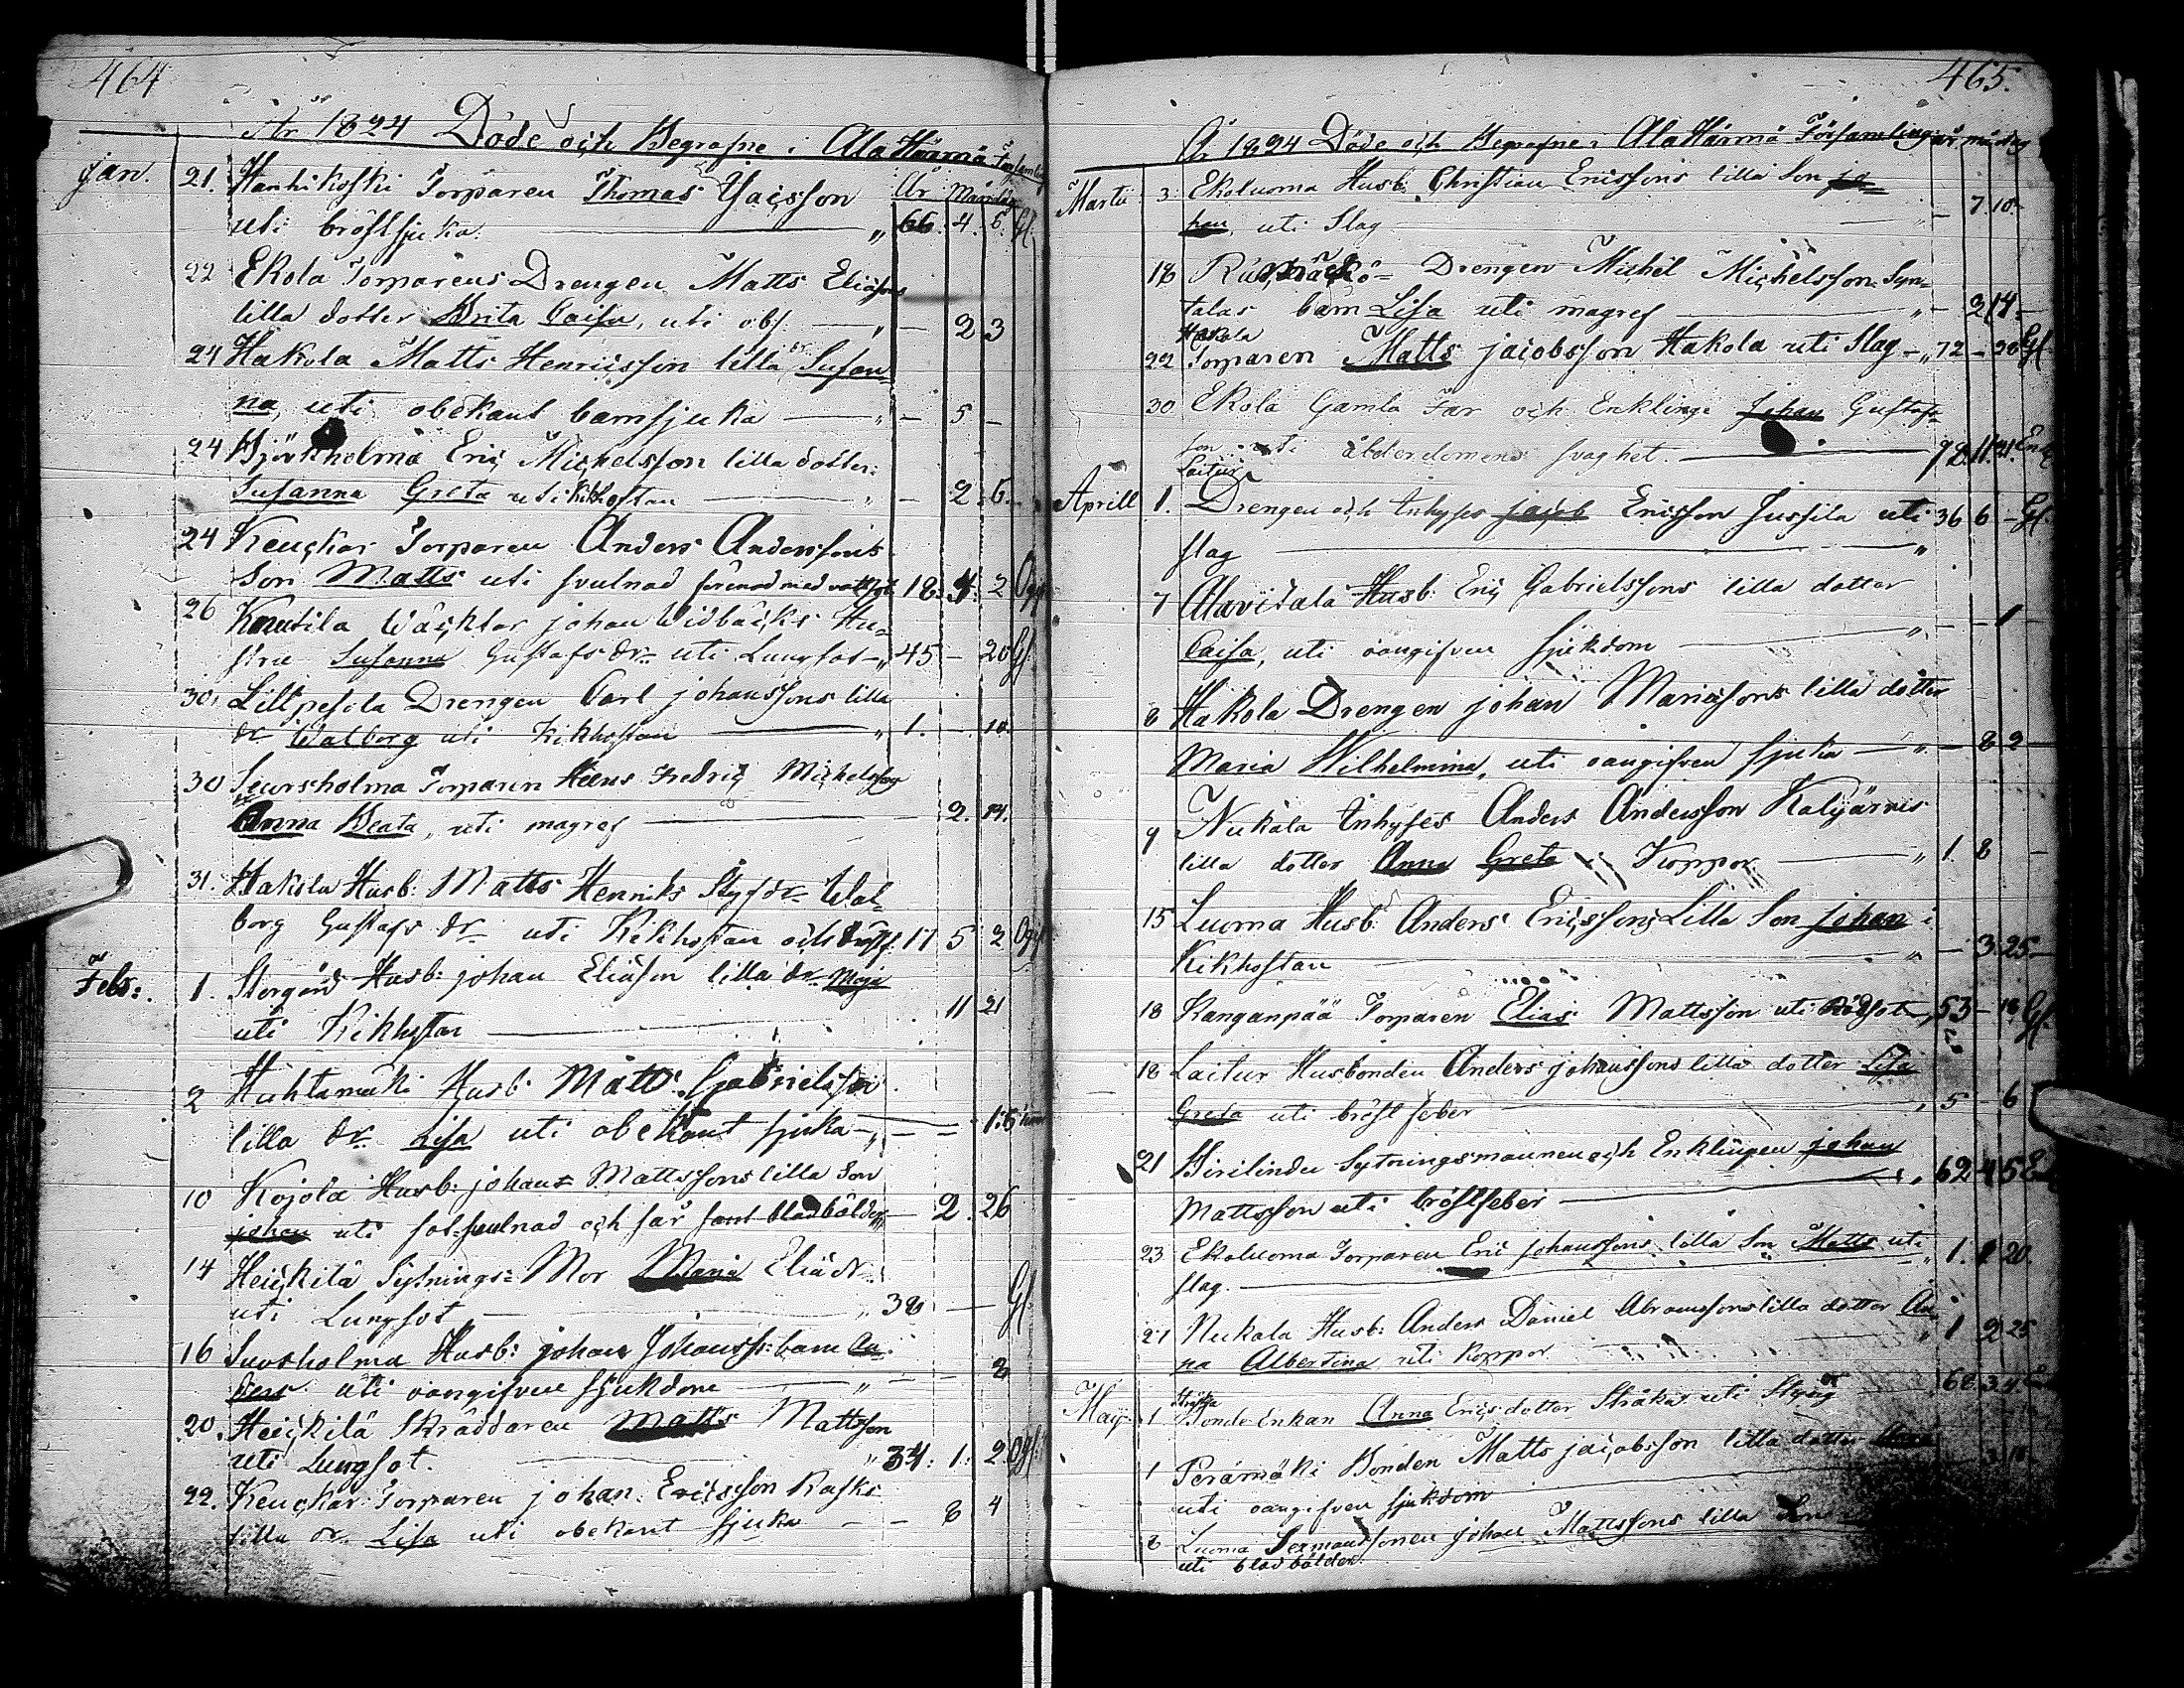 464
År 1824 Döde och Begrafne i Ala Härmä Församling
År Mån dag
Jan. 21. Hanhikoski Torparen Thomas
uti bröstsjuka. 66. 4. 5. Gf.
22 Ekola Torparens Drengen Matts Eliasons
lilla dotter Brita Caisa, uti obs. — 2 3
24 Hakola Matts Henricsson lilla dr Susan-
na, uti obekant barnsjuka — 5 –
24 Björkholma Eric Michelsson lilla dotter:
Susanna Greta uti Kikhostan — 2. 5.
24 Keuckar Torparen Anders Anderssons
Son Matts uti svulnad förenad med vattsot 18. 4. 2 Ogf
26 Knuutila Wäcktar johan Widbäcks Hu-
stru Susanna Gustafs dr uti Lungsot — 45 – 20 Gf.
30. Liltpesola Drengen Carl johanssons lilla
dr Walborg uti Kikhostan 1. – 10.
30 Suorsholma Torparen Fredric Michelsson
Anna Beata, uti magref — 2. 14.
31. Hakola Husb: Matts Henriks Styfdr Wal-
borg Gustafs dr uti Kikhostan och 17 5 2 Ogf
Febr: 1. Storgård Husb: johan Eliason lilla dr Maja
uti Kikhostan — 11 21
2 Huhtamäki Husb Matts Gabrielsson
lilla dr Lisa uti obekant sjuka —
10 Kojola Husb: johans Mattssons lilla Son
johan uti fotsvulnad och får bladbölder — 2. 26
14 Heickilä Sytnings-Mor Maria Eliä dr
uti Lungsot — 38 — Gf
16 Suorsholma Husb: johan Johanss: barn An-
ders uti oangifven sjukdom — 2
20. Heickilä Skräddaren Matts Mattsson
uti Lungsot. 34: 1: 2 Ogf.
22. Keuckar Torparen johan Ericsson Rasks
lilla dr Lisa uti obekant sjuka — 8 4
465.
År 1824 Döde och Begrafne i Ala Härmä Församling år må dag
Martii 3. Ekoluoma Husb: Christian Ericssons lilla Son jo-
han, uti Slag — 7. 10.
18 Drengen Michel Michelsson Syn-
talas barn Lisa uti magref — 2 14.
Hakola
22 Torparen Matts jacobsson Hakola uti Slag — 72 – 20 Gf.
30 Ekola Gamla Far och Enklinge Johan Gustafs-
son uti ålderdomens svaghet — 78. 11. 21. Enk
Laitur
Aprill 1. Drengen och Inhyses jacob Ericsson Jussila uti 36 6 – Gf.
slag
7 Alavidala Husb: Eric Gabrielssons lilla dotter
Caisa, uti oangifven sjukdom — 1
8 Hakola Drengen johan lilla dotter
Maria Wilhelmina, uti oangifven sjuka — 8 2
9 Nukala Inhyses Anders Andersson Kalijärvis
lilla dotter Anna Greta i Koppor — 1. 8 –
15 Luoma Husb: Anders Ericssons Lilla Son johan i
Kikhostan — 3. 25 –
18 Kanganpää Torparen Elias Mattsson uti Rödsot 53 – 18 Gf.
18 Laitur Husbonden Anders johanssons lilla dotter Lisa
Greta uti bröst feber 5 – 6
21 Sytningsmannen och Enklingen johan
Mattsson uti bröstfeber 62 4 5 Enk
23 Ekoluoma Torparen Eric johanssons lilla Son Matts uti
slag. 1. 20.
27 Nukala Husb: Anders Daniel Abramssons lilla dotter An-
na Albertina uti Koppor 1 2 25
Stråka
Maij 1 Bonde Enkan Anna Erics dotter Stråka uti Styng 68. 3. 4.
1 Perämäki Bonden Matts jacobsson lilla dotter
uti oangifven sjukdom
8 Luoma johan Mattssons lilla Son
uti bladbölder.